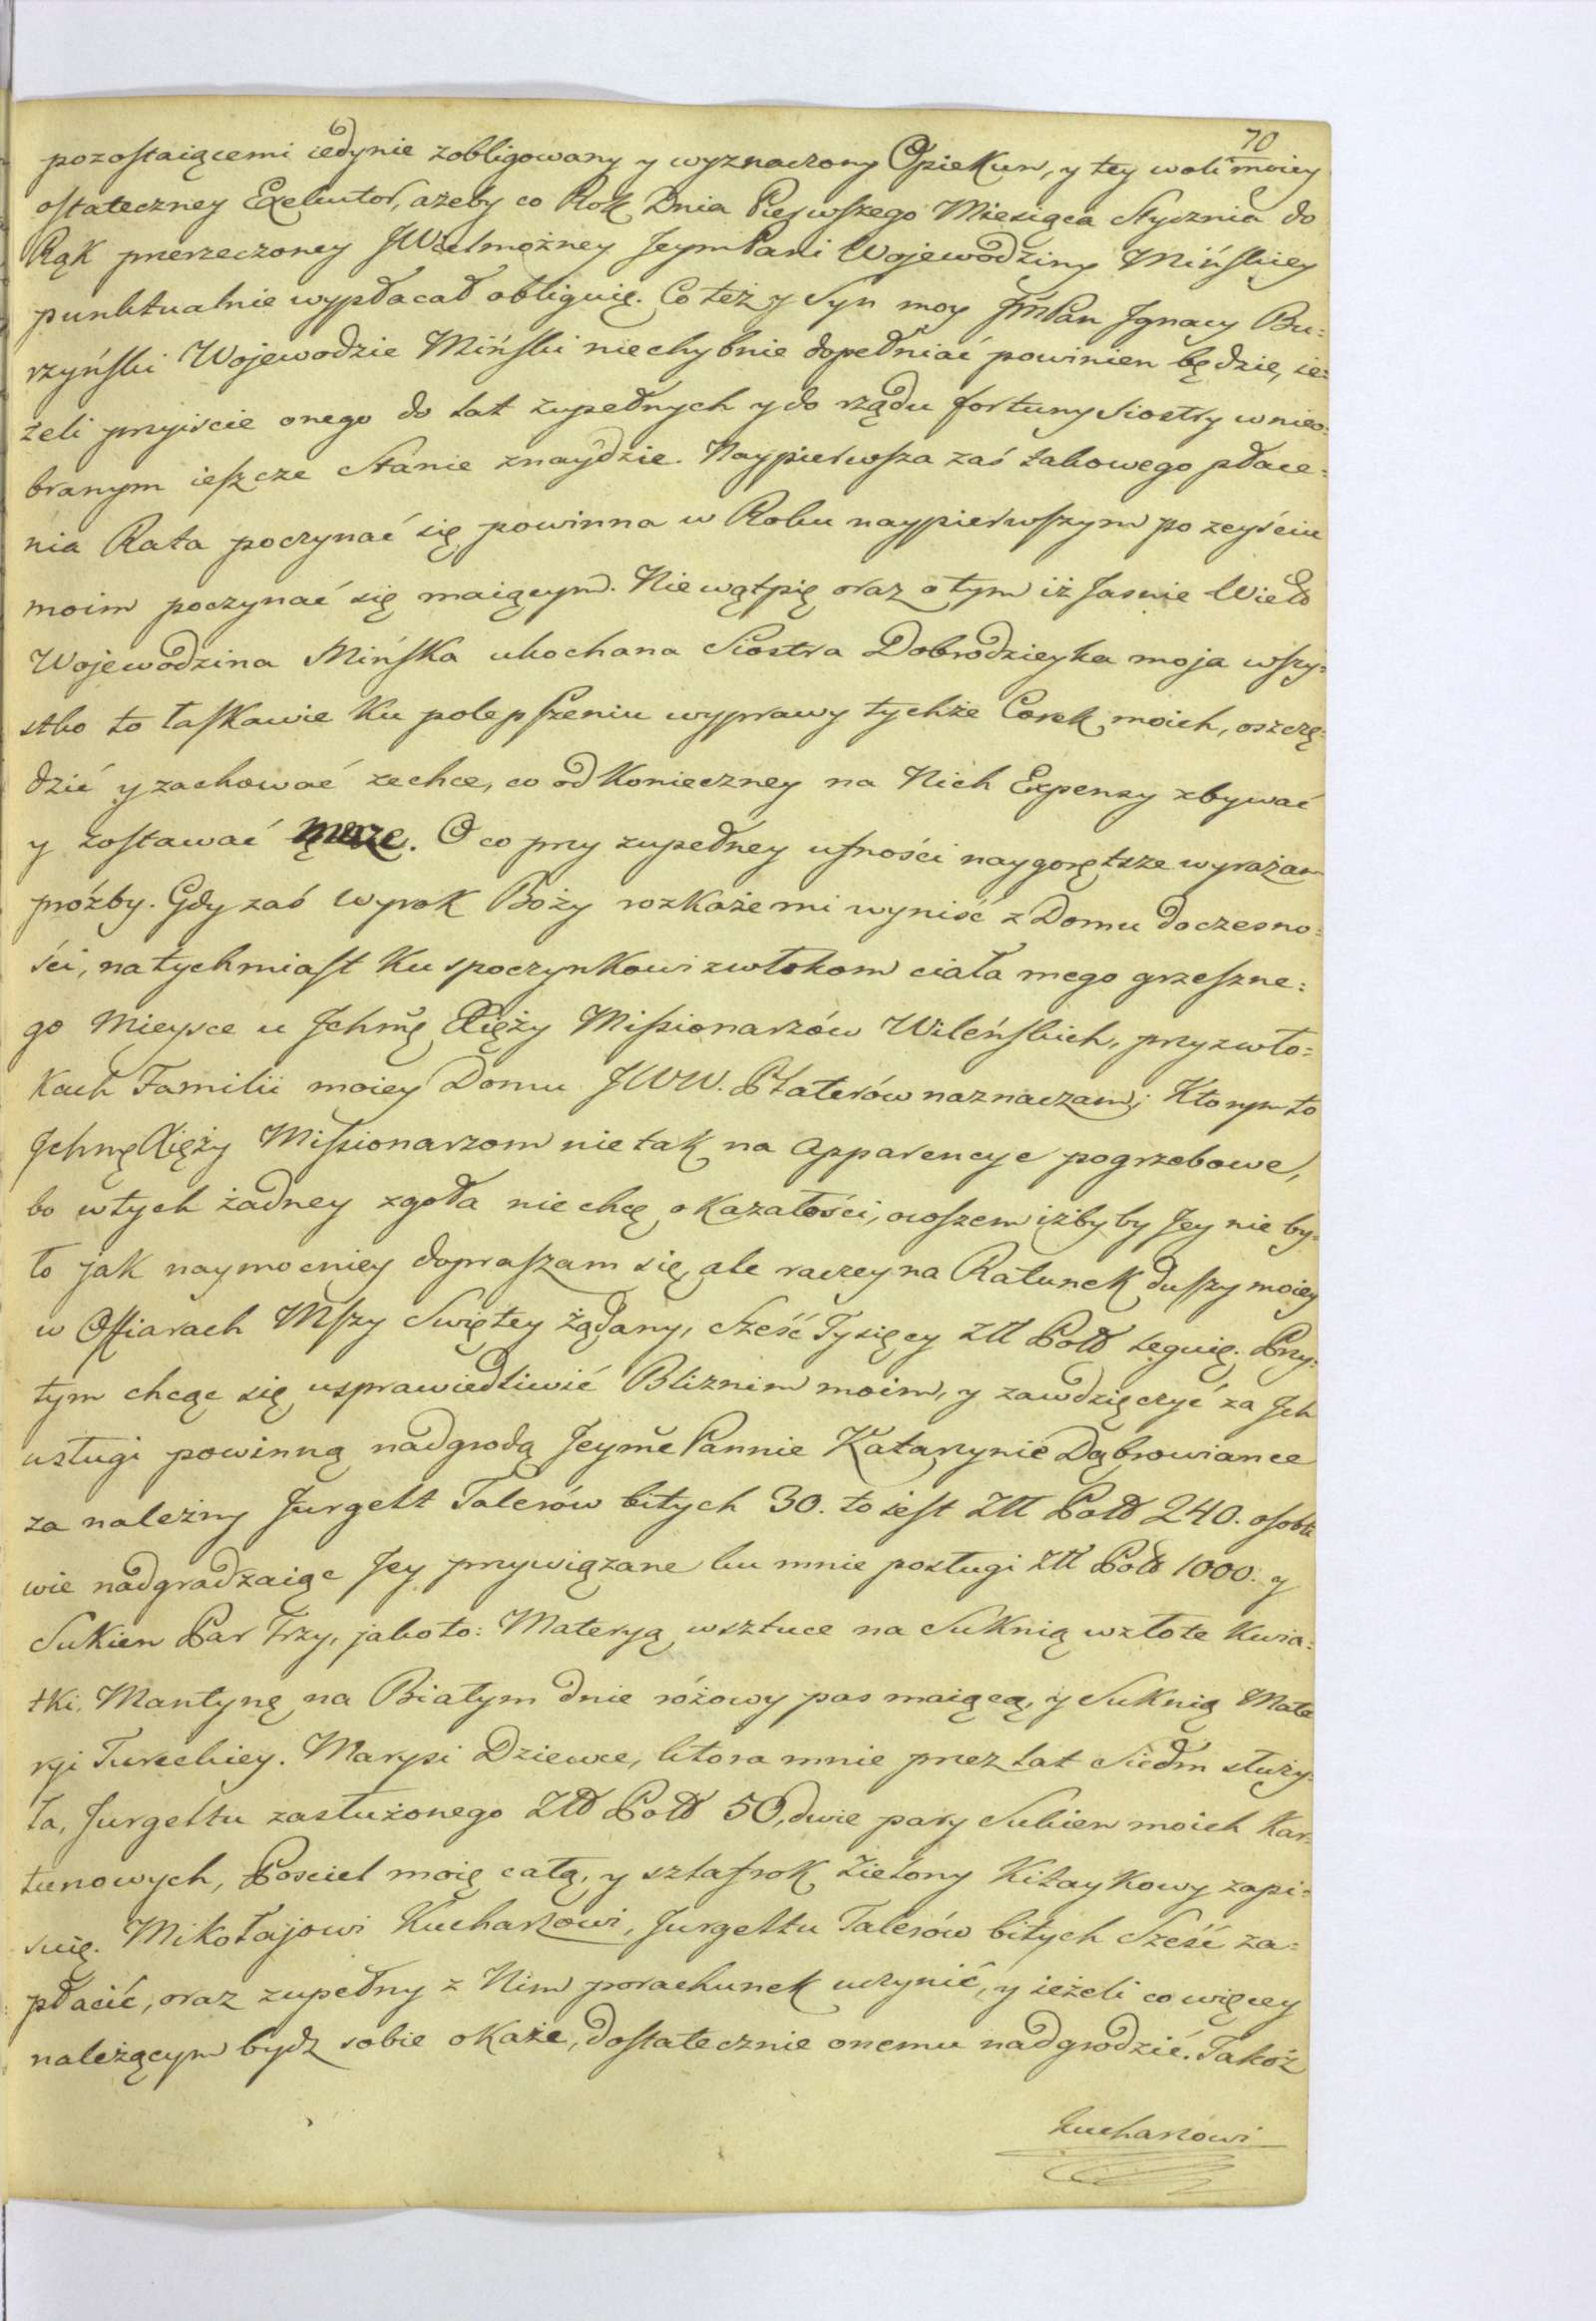 70
pozostaiącemi iedynie zobligowany y wyznaczony Opiekun, y tey woli moiey
ostateczney Exekutor, ażeby co Rok Dnia Pierwszego Miesiąca Stycznia do
Rąk przerzeczoney JWielmożney JeymPani Wojewodziny Mińskiey
punktualnie wypłacał obliguię. Co też y Syn moy JmPan Jgnacy Bu=
rzyński Wojewodzic Miński niechybnie dopełniać powinien będzie, ie=
żeli przyiście onego do lat zupełnych y do rządu fortuny Siostry w nieo=
branym ieszcze Stanie znaydzie. Naypierwsza zaś takowego płace=
nia Rata poczynać się powinna w Roku naypierwszym po zeyściu
moim poczynać się maiącym. Niewątpię oraz o tym iż Jasnie Wieł
Wojewodzina Mińska ukochana Siostra Dobrodzieyka moja wszy=
stko to łaskawie ku polepszeniu wyprawy tychże Corek moich, oszczę=
dzić y zachować zechce, co od konieczney na Nich Expensy zbywać
y zostawać może. O co przy zupełney ufności naygorętsze wyrażam
próżby. Gdy zaś Wyrok Boży rozkaże mi wyniść z Domu doczesno=
ści, natychmiast ku spoczynkowi zwłokom ciała mego grzeszne=
go Mieysce u Jchmę Xięży Missionarzów Wileńskich, przy zwło=
kach Familii moiey Domu JWW. Platerów naznaczam; Ktorym to
Jchmę Xięży Missionarzom nie tak na apparencye pogrzebowe,
bo w tych żadney zgoła nie chcę okazałości, owszem iżby by Jey nie by=
ło jak naymocniey dopraszam się, ale raczey na Ratunek duszy moiey
w Offiarach Mszy Swiętey żądany, Sześć Tysięcy Złł Poll leguię. Przy=
tym chcąc się usprawiedliwić Bliznim moim, y zawdzięczyć za Jch
usługi powinną nadgrodą Jeyme Pannie Katarzynie Dąbrowiance
za należny Jurgelt Talerów bitych 30. to iest Złł Poll 240. osobli
wie nadgradzaiąc Jey przywiązane ku mnie posługi Złł Poll 1000. y
Sukien Par Trzy, jako to: Materyą w sztuce na Suknią w złote Kwia=
tki. Mantynę na Białym dnie różowy pas maiącą, y Suknią Mate
ryi Tureckiey. Marysi Dziewce, ktora mnie przez lat Siedm służy=
ła, Jurgeltu zasłużonego Złł Poll 50, dwie pary Sukien moich Kar=
tunowych, Posciel moię całą, y szlafrok Zielony Kitaykowy zapi=
suię. Mikołajowi Kucharzowi, Jurgeltu Talerów bitych Sześć za=
płacić, oraz zupełny z Nim porachunek uczynić, y ieżeli co więcey
należącym bydz sobie okaże, dostatecznie onemu nadgrodzić. Takoż
Kucharzowi